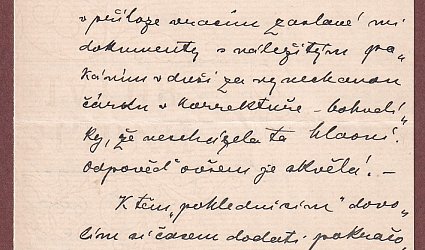 v příloze vracím zaslané mi
dokumenty s náležitým po„
káním v duši za vynechanou
čárku v korrektuře – bohudí
ky, že nescházela ta hlavní!
Odpověď ovšem je skvělá! –
K těm „pohlednicím“ dovo„
lím si časem dodati pokračo„